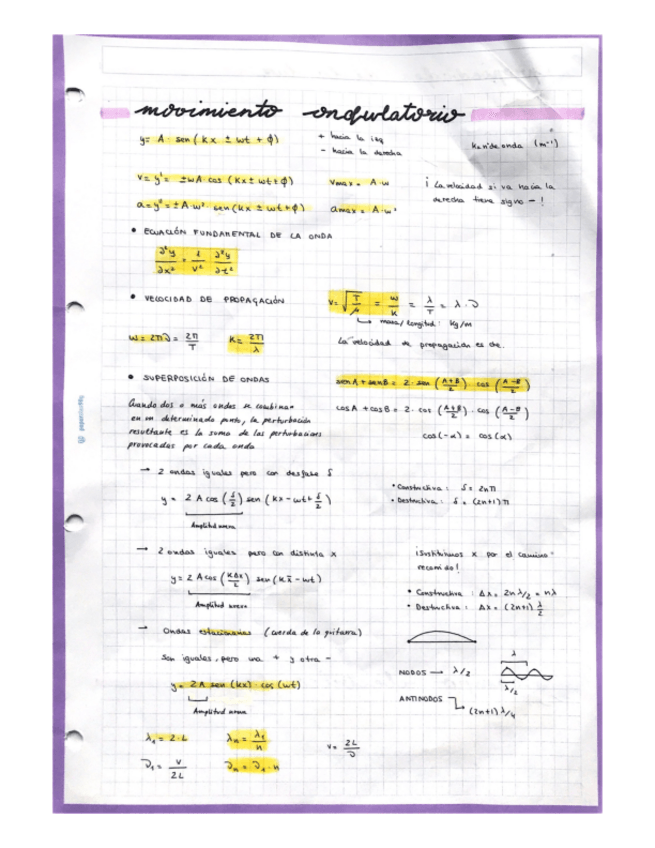 movimiento ondulatorio
y = A · sen (kx ± ωt + ϕ)
+ hacia la izq
- hacia la derecha
k = nº de onda (m⁻¹)
v = y' = ±ωA cos (kx ± ωt ± ϕ)
vmax = A·ω
¡ La velocidad si va hacia la
derecha tiene signo - !
a = y'' = ± A·ω² · sen (kx ± ωt + ϕ)
amax = A·ω²
• ECUACIÓN FUNDAMENTAL DE LA ONDA
∂²y/∂x² = 1/v² ∂²y/∂t²
• VELOCIDAD DE PROPAGACIÓN
v = √(T/μ) = ω/k = λ/T = λ · ν
masa/longitud : kg/m
ω = 2πν = 2π/T
k = 2π/λ
La velocidad de propagación es cte.
• SUPERPOSICIÓN DE ONDAS
sen A + sen B = 2 · sen (A+B/2) · cos (A-B/2)
Cuando dos o más ondas se combinan
en un determinado punto, la perturbación
resultante es la suma de las perturbaciones
provocadas por cada onda
cos A + cos B = 2 · cos (A+B/2) · cos (A-B/2)
cos(-α) = cos(α)
→ 2 ondas iguales pero con desfase δ
y = 2 A cos (δ/2) sen (kx - ωt + δ/2)
Amplitud nueva
• Constructiva : δ = 2nπ
• Destructiva : δ = (2n+1)π
→ 2 ondas iguales pero con distinta x
y = 2 A cos (kΔx/2) sen (kx̄ - ωt)
Amplitud nueva
¡Sustituimos x por el camino
recorrido!
• Constructiva : Δx = 2n λ/2 = nλ
• Destructiva : Δx = (2n+1) λ/2
→ Ondas estacionarias (cuerda de la guitarra)
Son iguales, pero una + y otra -
y = 2A sen (kx) · cos (ωt)
Amplitud nueva
λ
λ/2
NODOS → λ/2
ANTINODOS (2n+1) λ/4
λ₁ = 2·L
λn = λ₁/n
v = 2L/ν
ν₁ = v/2L
νn = ν₁ · n